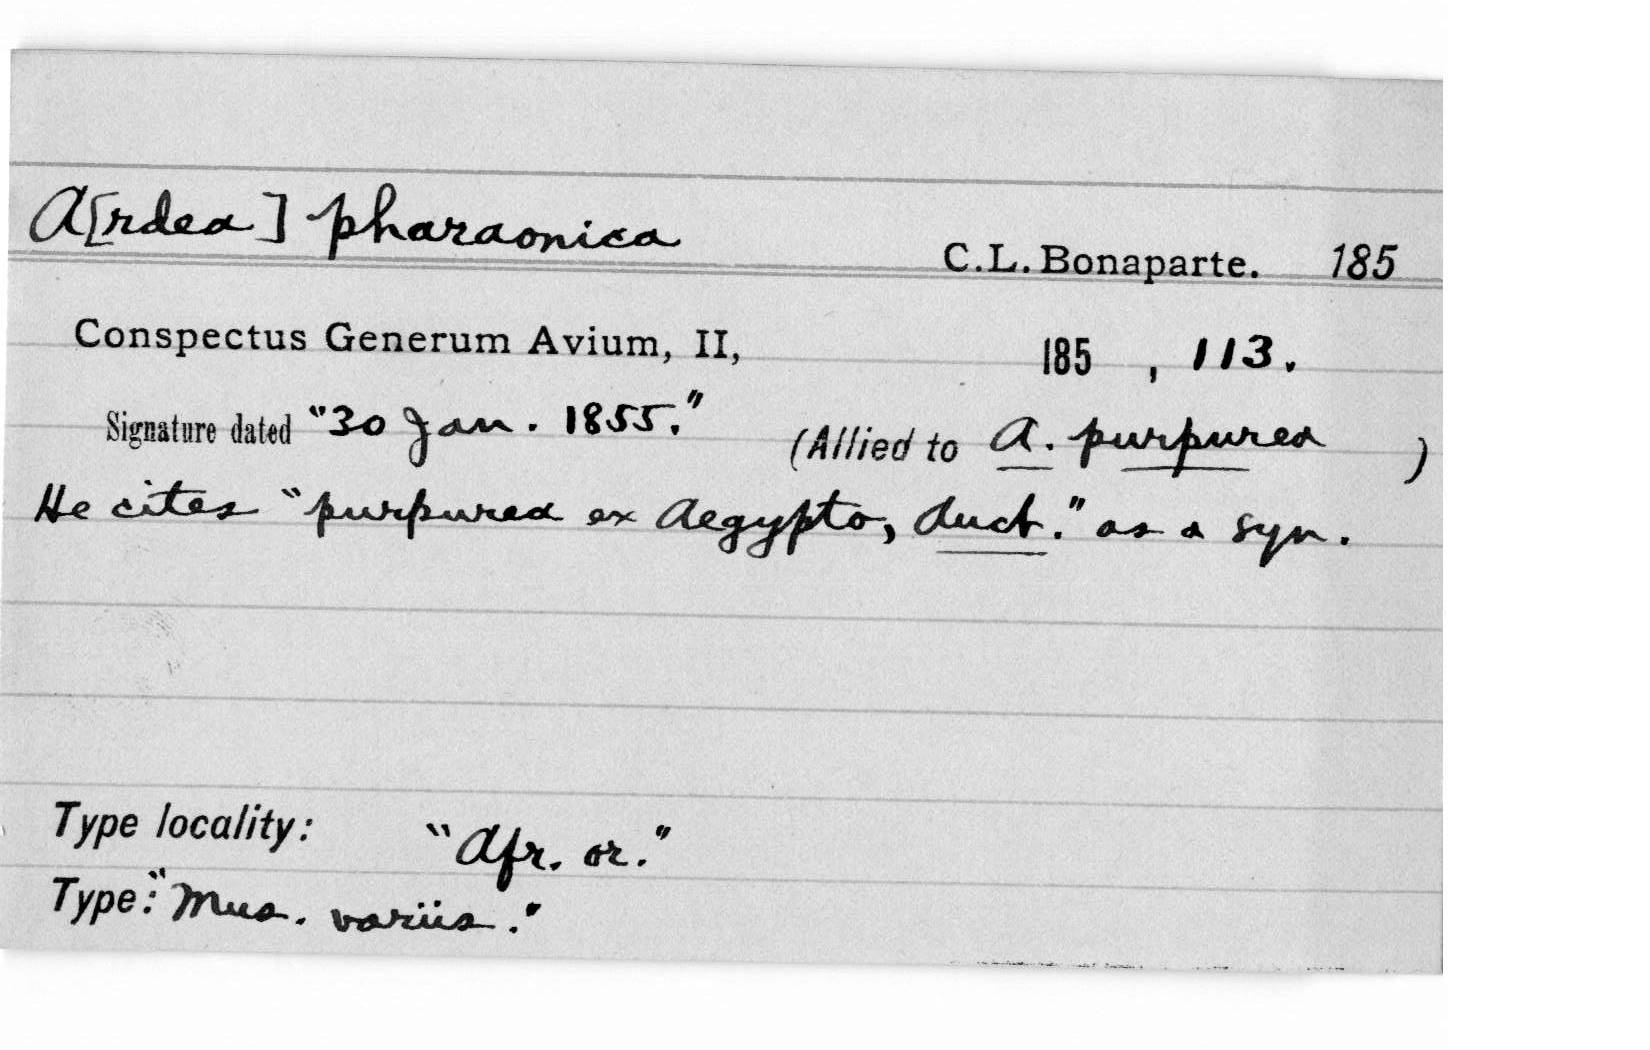 A[rdea] pharaonica C.L. Bonaparte. 185
Conspectus Generum Avium, II, 185 , 113.
Signature dated "30 Jan. 1855." (Allied to A. purpurea )
He cites "purpurea ex Aegypto, Auct." as a syn.
Type locality: "Afr. or."
Type: "Mus. variis."